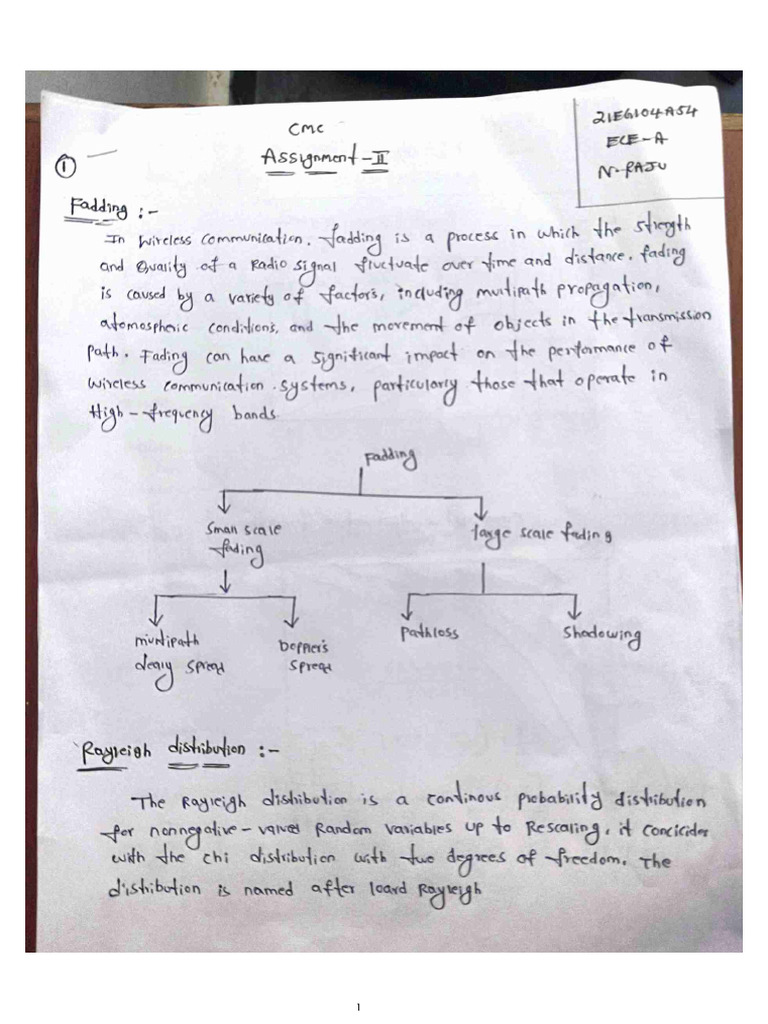 CMC
Assignment-II
21EG104A54
ECE-A
N-RAJU
①
Fadding :-
In wireless communication. fadding is a process in which the strength
and Quality of a Radio signal fluctuate over time and distance. fading
is caused by a variety of factors, including multipath propagation,
atomospheric conditions, and the movement of objects in the transmission
path. Fading can have a significant impact on the performance of
wireless communication systems, particularly those that operate in
High-frequency bands.
Fadding
Small scale
fading
large scale fading
multipath
delay spread
Doppler's
spread
pathloss
shadowing
Rayleigh distribution :-
The Rayleigh distribution is a continous probability distribution
for nonnegative-valued Random variables up to Rescaling, it concicides
with the chi distribution with two degrees of freedom. The
distribution is named after loard Rayleigh
1